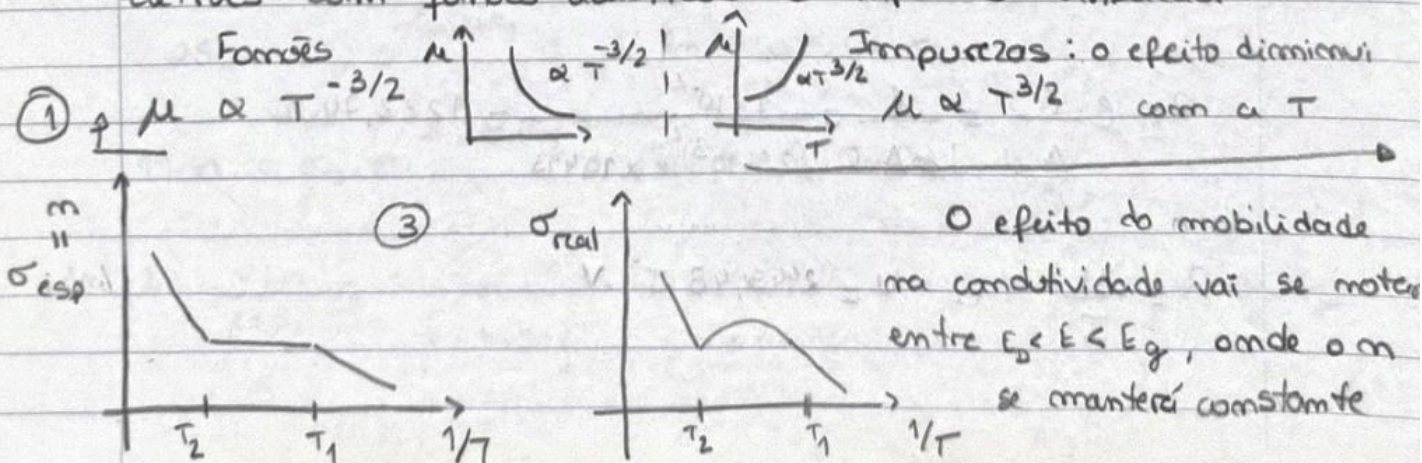 Fonões
μ ∝ T^-3/2
①
μ
∝ T^-3/2
μ
∝T^3/2
T
Impurezas : o efeito diminui
μ ∝ T^3/2 com a T
n
=
σesp
T2 T1 1/T
③
σreal
T2 T1 1/T
O efeito do mobilidade
na condutividade vai se notar
entre ED < E < Eg, onde o n
se manterá constante